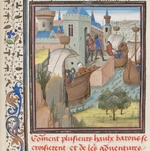 Coment plusieurs haulx barons se
croisierent et de leur adventure